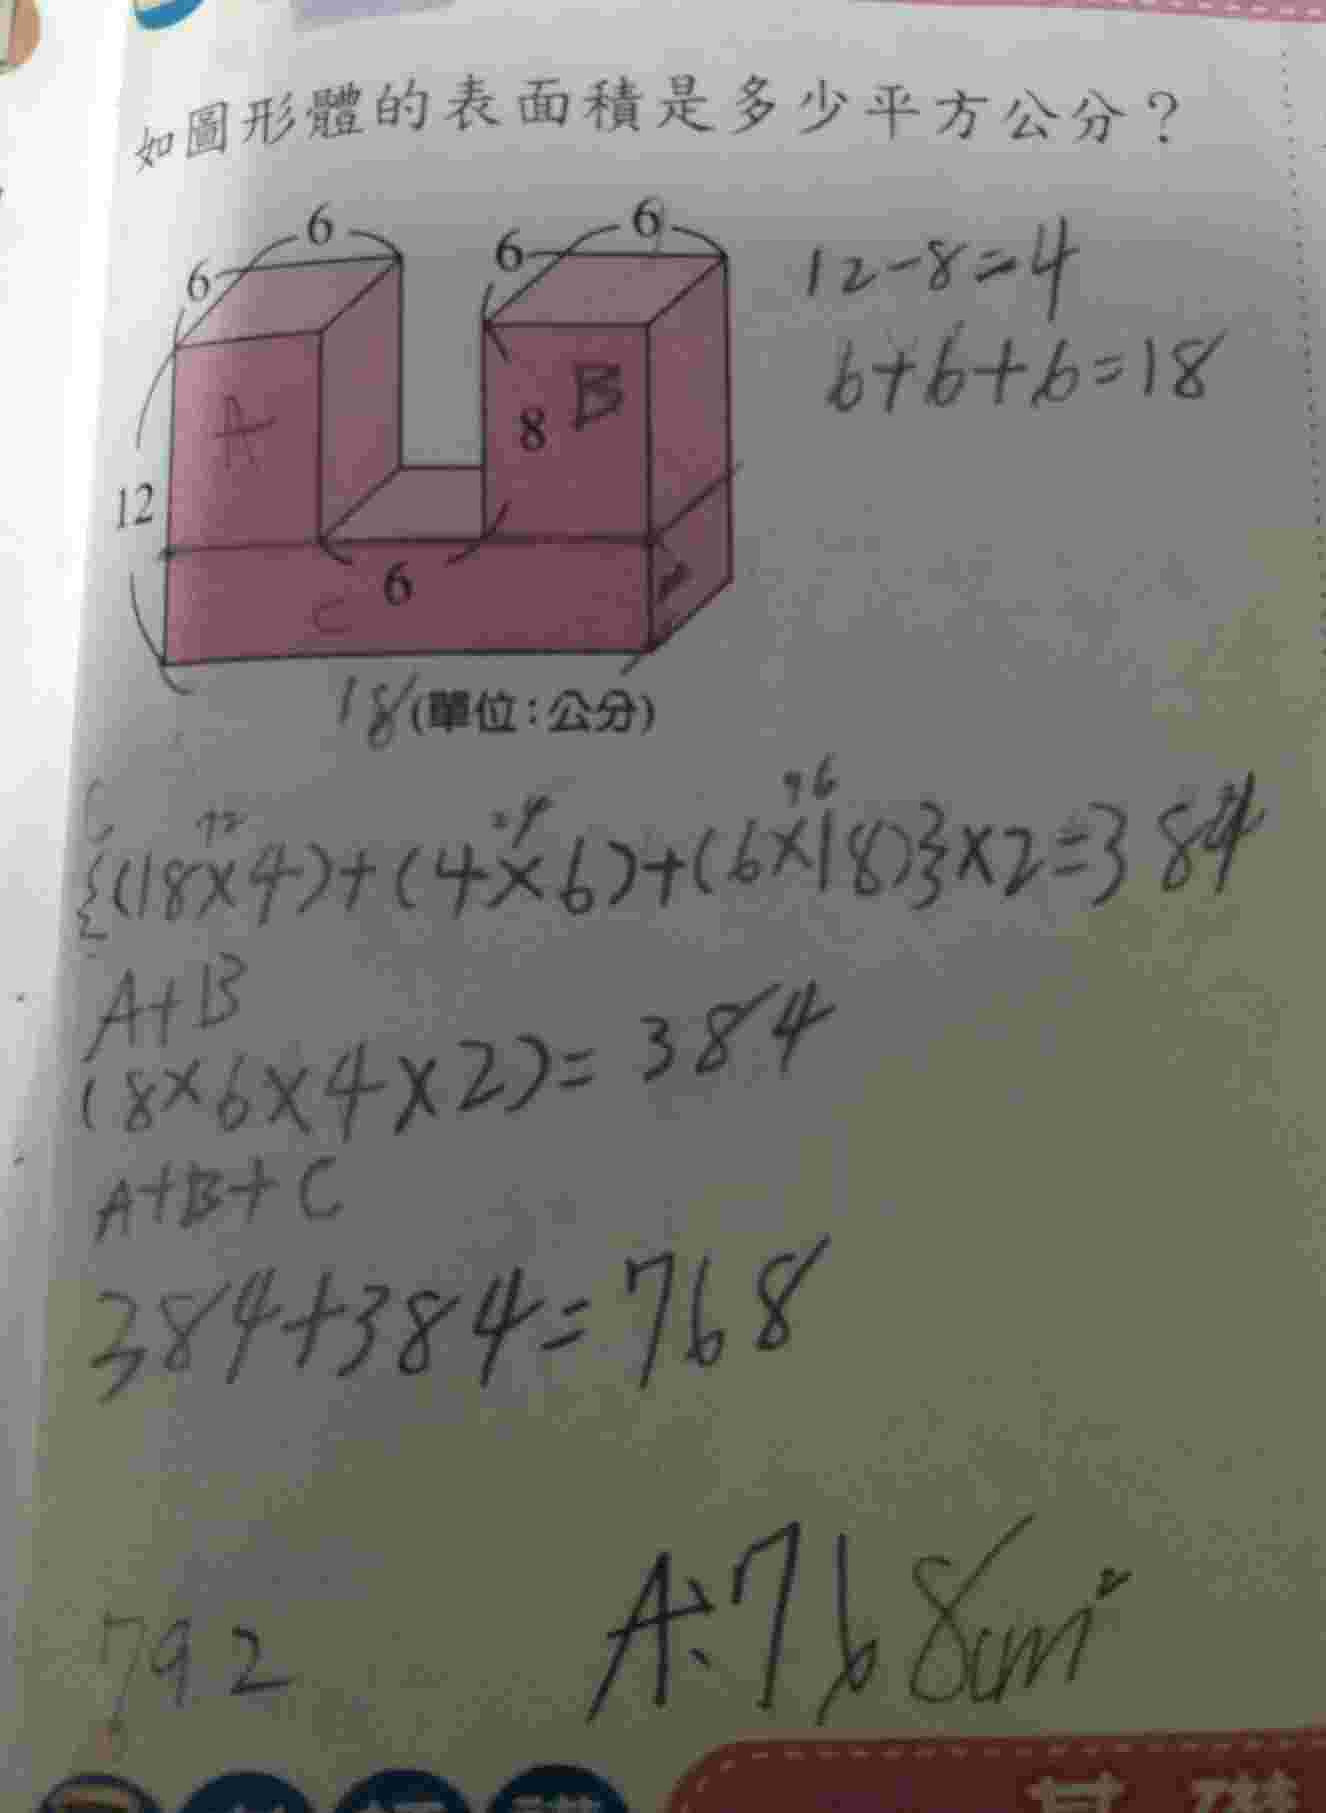 如圖形體的表面積是多少平方公分？
6
6
6
6
12-8=4
6+6+6=18
A
B
8
12
6
C
18(單位：公分)
C
72
24
96
{(18×4)+(4×6)+(6×18)}×2=384
A+B
(8×6×4×2)=384
A+B+C
384+384=768
792
A:768cm²